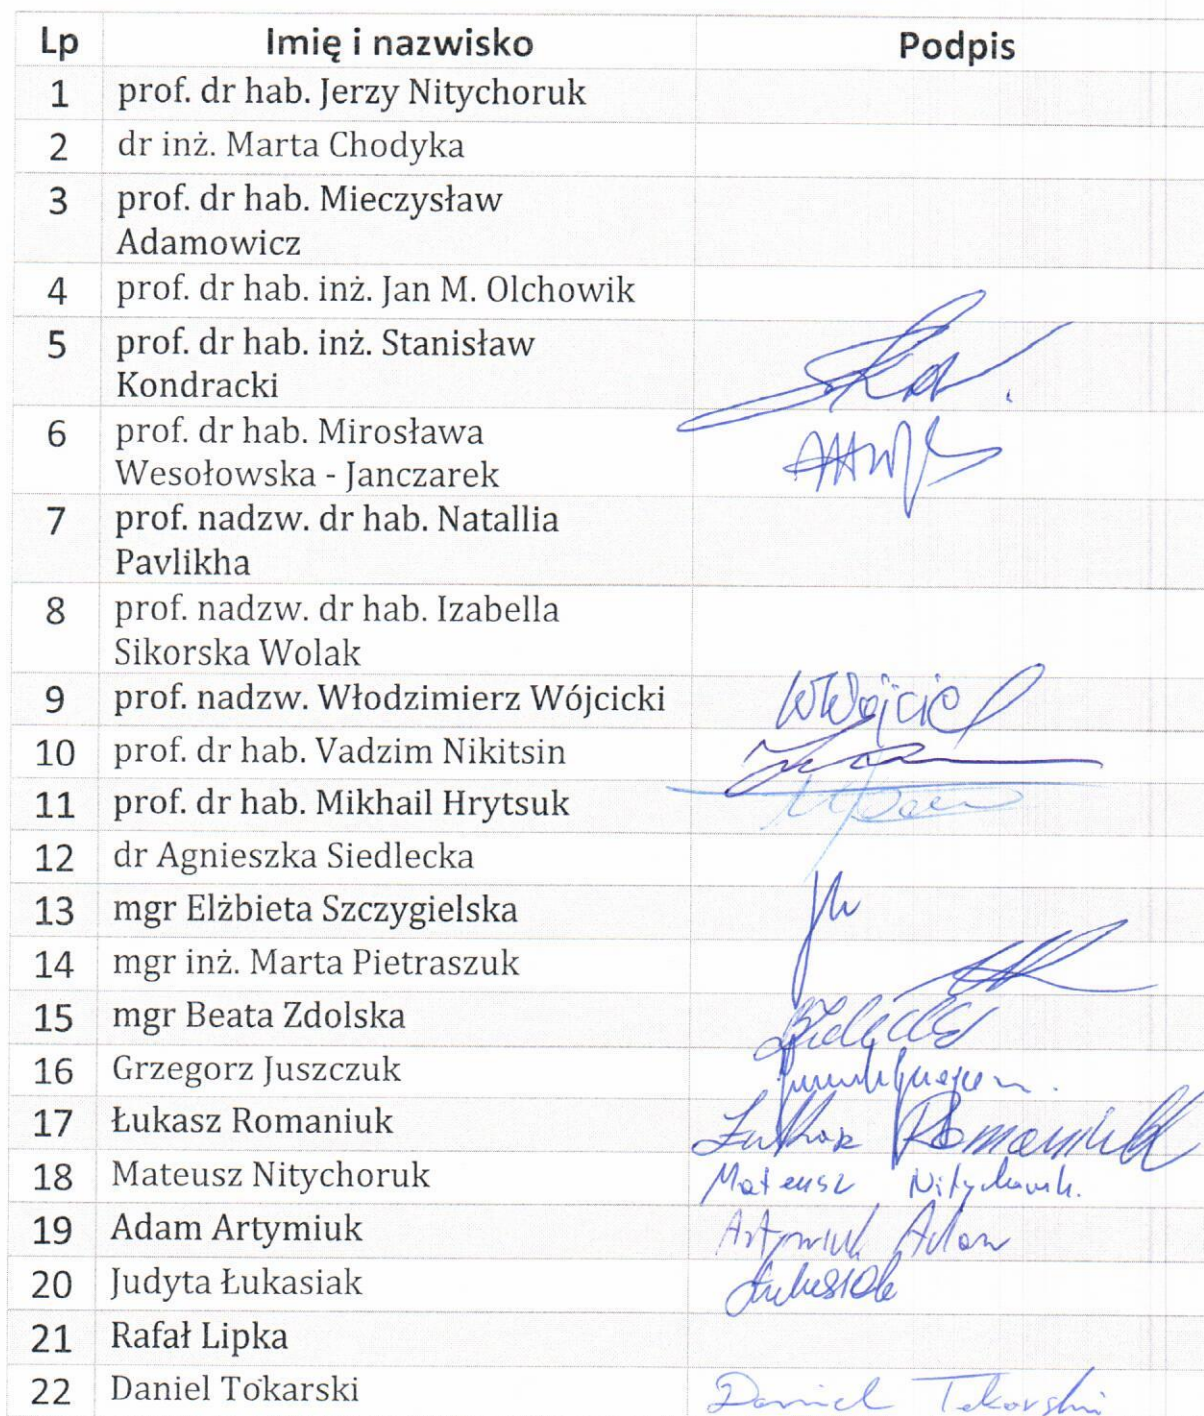 Lp Imię i nazwisko Podpis
1 prof. dr hab. Jerzy Nitychoruk
2 dr inż. Marta Chodyka
3 prof. dr hab. Mieczysław
Adamowicz
4 prof. dr hab. inż. Jan M. Olchowik
5 prof. dr hab. inż. Stanisław
Kondracki
6 prof. dr hab. Mirosława
Wesołowska - Janczarek
7 prof. nadzw. dr hab. Natallia
Pavlikha
8 prof. nadzw. dr hab. Izabella
Sikorska Wolak
9 prof. nadzw. Włodzimierz Wójcicki
10 prof. dr hab. Vadzim Nikitsin
11 prof. dr hab. Mikhail Hrytsuk
12 dr Agnieszka Siedlecka
13 mgr Elżbieta Szczygielska
14 mgr inż. Marta Pietraszuk
15 mgr Beata Zdolska
16 Grzegorz Juszczuk
17 Łukasz Romaniuk Łukasz Romaniuk
18 Mateusz Nitychoruk Mateusz Nitychoruk.
19 Adam Artymiuk Artymiuk Adam
20 Judyta Łukasiak Łukasiak
21 Rafał Lipka
22 Daniel Tokarski Daniel Tokarski